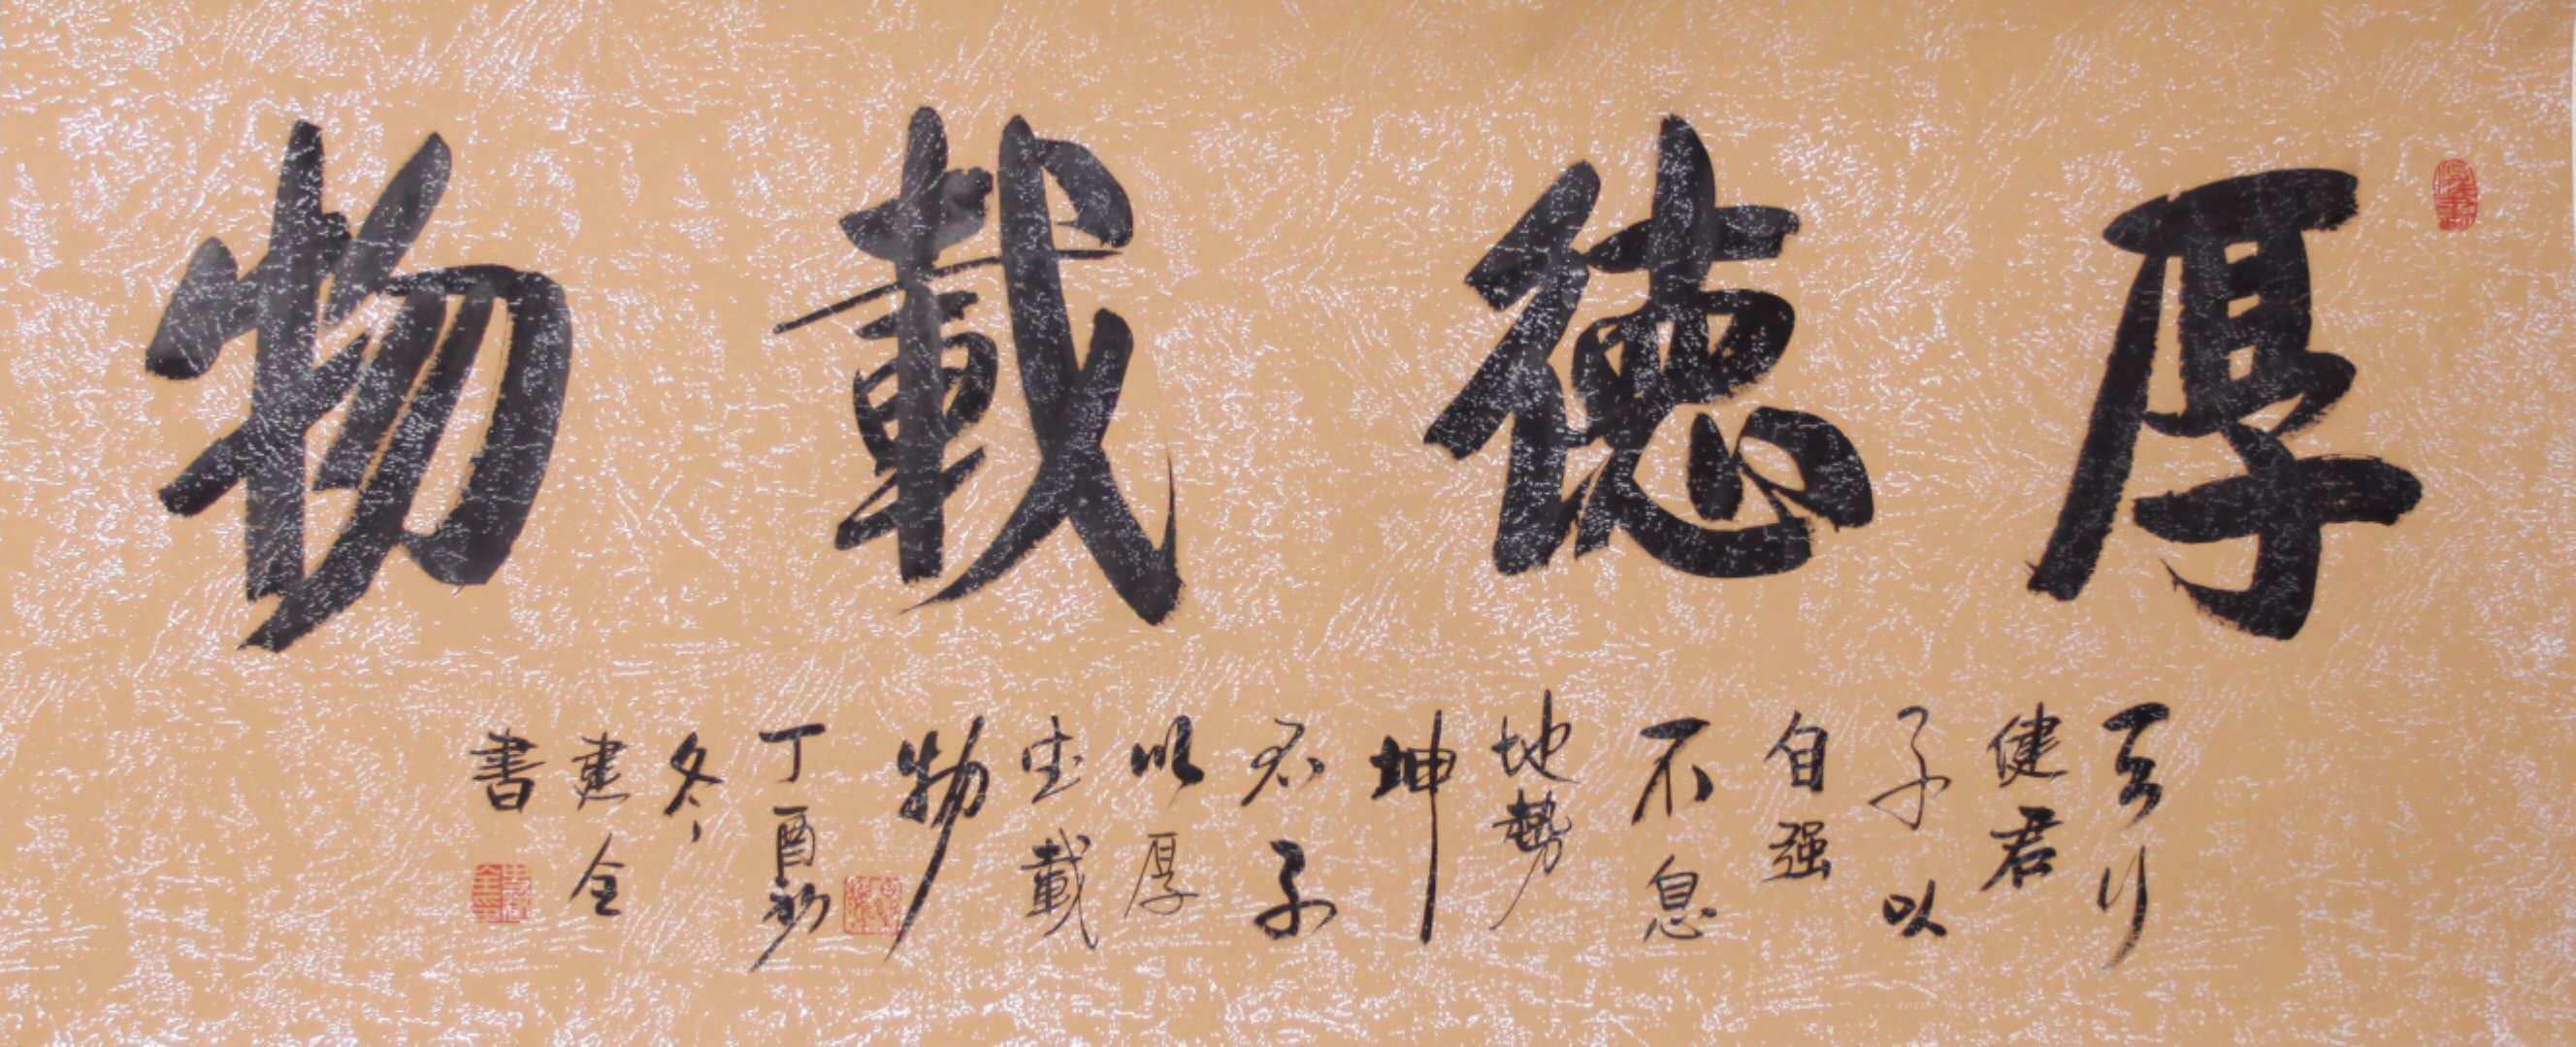 厚德載物
天行
健君
子以
自强
不息
地勢
坤
君子
以厚
德載
物
丁酉初
冬
建全
書